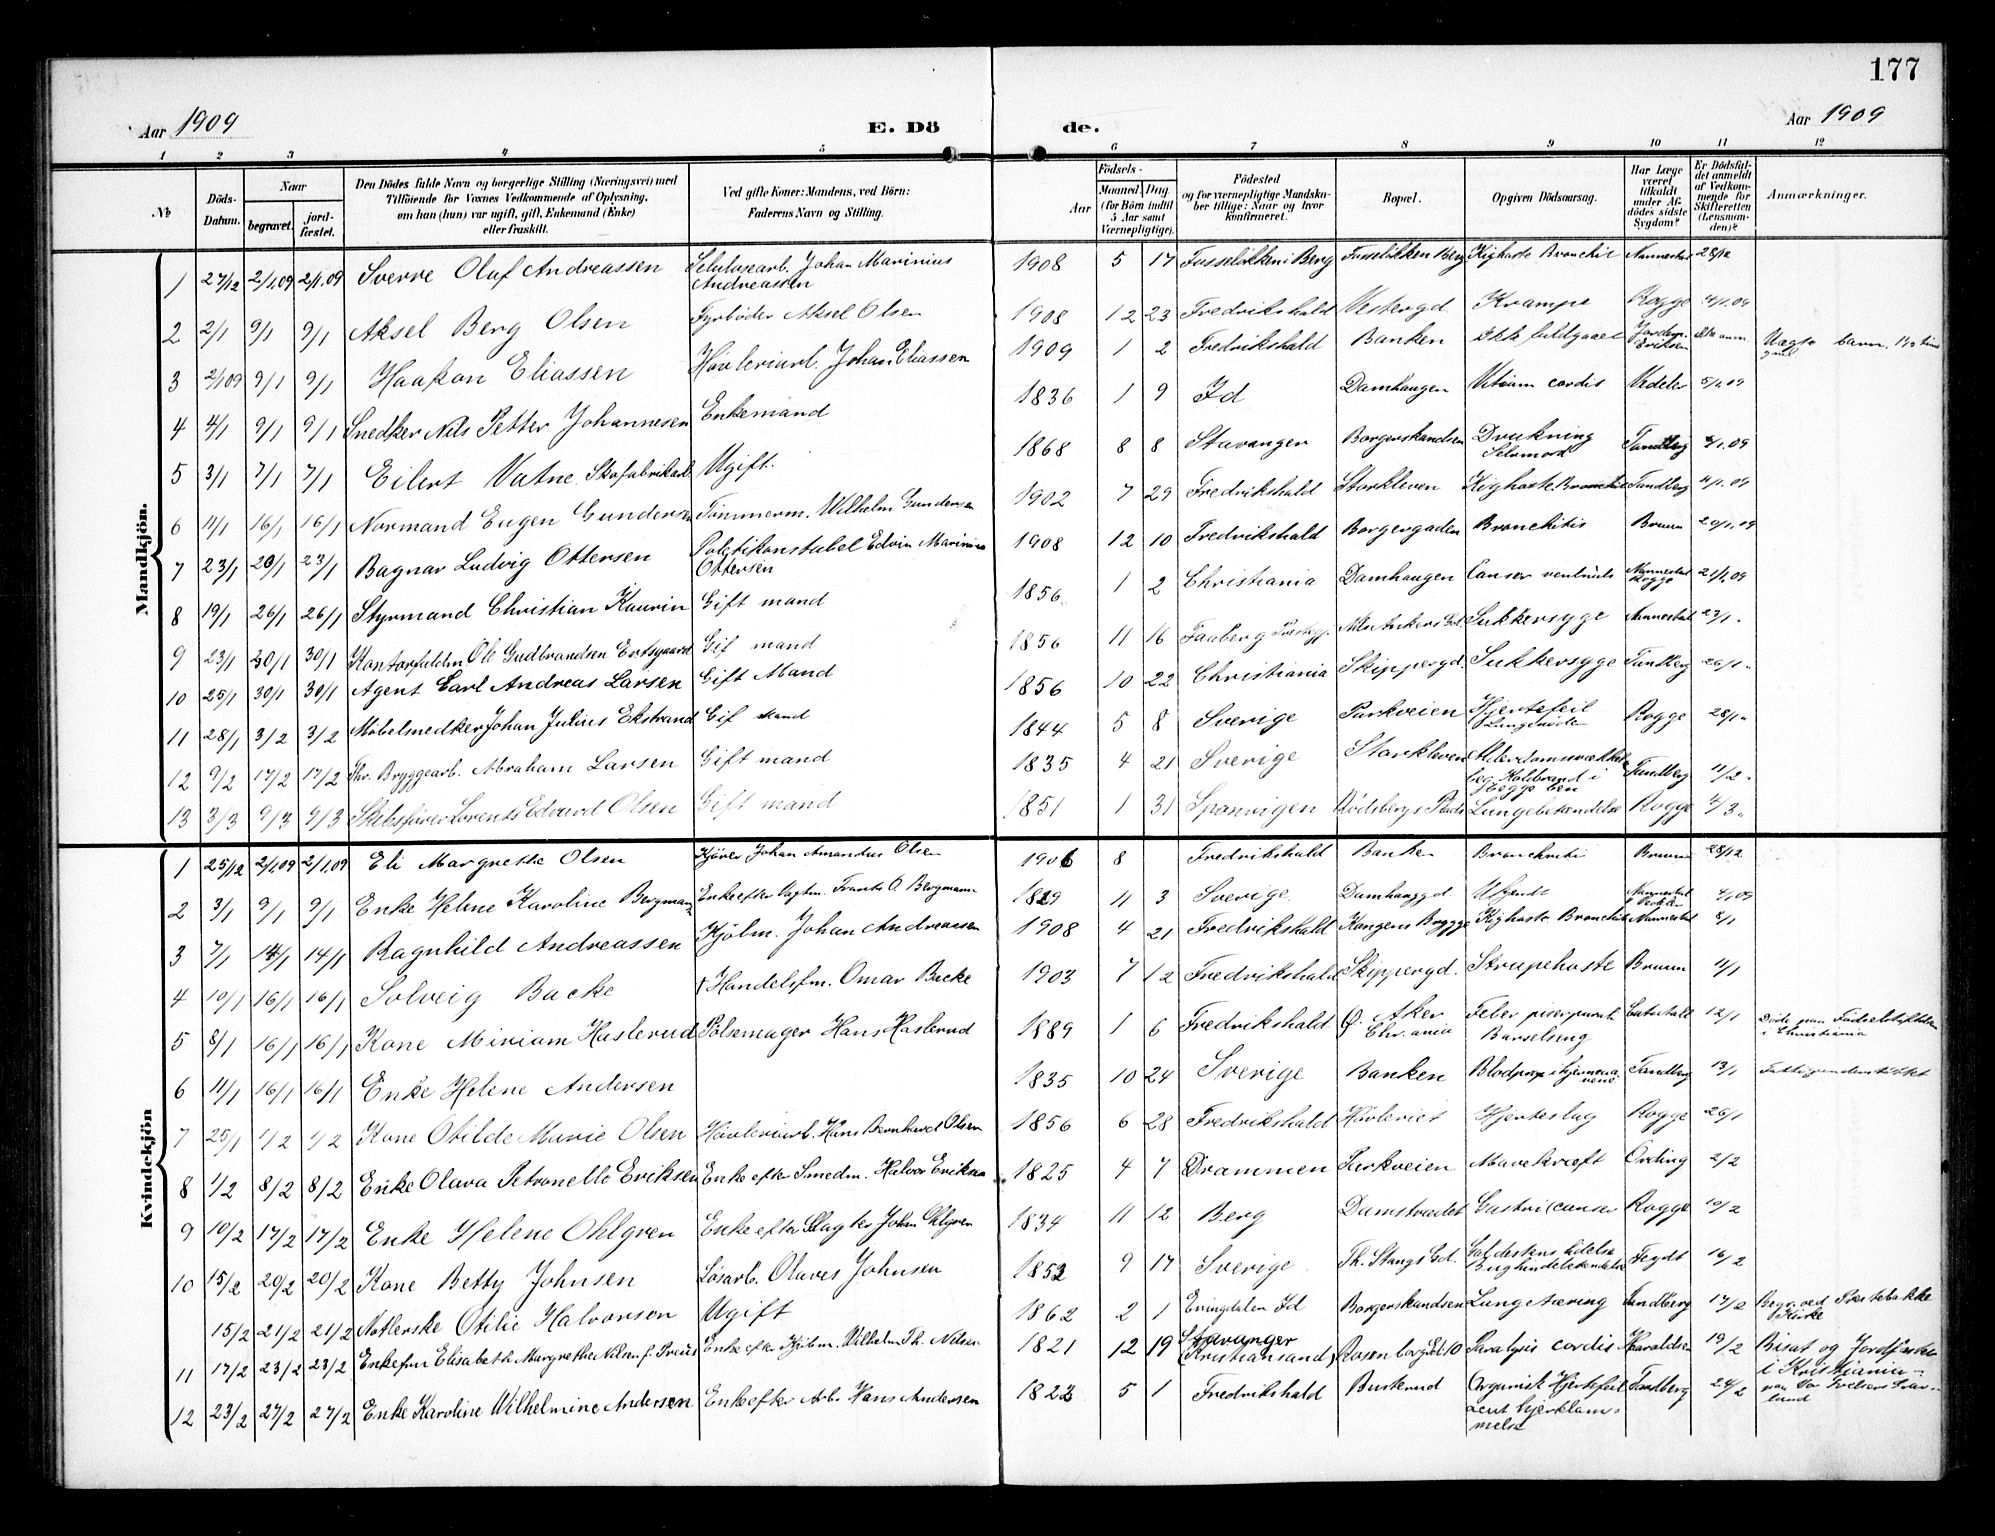 177
Aar 1909
E. Dö
de.
Aar 1909
1 2 3 4 5 6 7 8 9 10 11 12
No
Döds-Datum.
Naar
begravet.
jord-fæstet.
Den Dödes fulde Navn og borgerlige Stilling (Næringsvei) med
Tilföiende for Voxnes Vedkommende af Oplysning,
om han (hun) var ugift, gift, Enkemand (Enke)
eller fraskilt.
Ved gifte Koner: Mandens, ved Börn:
Faderens Navn og Stilling.
Födsels-
Aar
Maaned. Dag.
(for Börn indtil
5 Aar samt
Værnepligtige).
Födested
og for værnepligtige Mandska-
ber tillige: Naar og hvor
konfirmeret.
Bopæl.
Opgiven Dödsaarsag.
Har Læge
været
tilkaldt
under Af-
dödes sidste
Sygdom?
Er Dödsfal-
det anmeldt
af Vedkom-
mende for
Skifteretten
(Lensman-
den)?
Anmærkninger.
Mandkjön.
1 27/12 2/1.09 2/1.09 Sverre Oluf Andreassen Johan Marinius Andreassen 1908 5 17 Berg Berg Kighoste Bronchit Nannestad 28/12
2 2/1 9/1 9/1 Aksel Berg Olsen Fyrböder Aksel Olsen 1908 12 23 Fredrikshald Vestergd Krampe Rogge 4/1.09
3 2/1 09 9/1 9/1 Haakon Eliassen Hövleriarb. Johan Eliassen 1909 1 2 Fredrikshald Banken Ikke fuldgaaet Jordem. Eriksen barn.
4 4/1 9/1 9/1 Snedker Nils Petter Johannesen Enkemand 1836 1 9 Id Damhaugen Vitium cordis Vedeler 5/1.09
5 3/1 7/1 7/1 Eilert Vatne Skofabrikarb. Ugift. 1868 8 8 Stavanger Borgerskandsen Drukning Selvmord Tandberg 4/1.09
6 11/1 16/1 16/1 Normand Eugen Gundersen Tömmerm. Wilhelm Gundersen 1902 7 29 Fredrikshald Storkleven Kighoste Bronchit Tandberg
7 23/1 20/1 23/1 Ragnar Ludvig Ottersen Politikonstabel Edvin Marinius Ottersen 1908 12 10 Fredrikshald Borgergaden Bronchitis Bruun 20/1.09
8 19/1 26/1 26/1 Styrmand Christian Kaurin Gift mand 1856. 1 2 Christiania Damhaugen Canser ventriculi Nannestad Rogge 21/1.09
9 23/1 30/1 30/1 Kontorfuldm Ole Gudbrandsen Gif mand 1856 11 16 Faaberg Nils Ankers Gd. Sukkersyge Nannestad 23/1.
10 25/1 30/1 30/1 Agent Carl Andreas Larsen Gift Mand 1856 10 22 Christiania Skippergd. Sukkersyge Tandberg 26/1
11 28/1 3/2 3/2 Möbelsnedker Johan Julius Ekstrand Gif mand 1844 5 8 Sverige Parkveien Hjertefeil Rogge 28/1
12 9/2 17/2 17/2 Bryggearb. Abraham Larsen Gift mand 1835 4 21 Sverige Storkleven Koldbrand i begge ben Tandberg 11/2.
13 3/3 9/3 9/3 Skibsförer Lorents Edvard Olsen Gift mand 1851 1 31 Sponvigen Rödsbergs Plads Lungebetændelse Rogge 4/3.
Kvindekjön
1 25/12 2/1.09 2/1.09 Eli Margrethe Olsen Kjörer Johan Amandus Olsen 1906 8 Fredrikshald Banken Bronchitis Bruun 28/12
2 3/1 9/1 9/1 Enke Helene Karoline Bergman Enke efter Vagtm. Frants A. Bergmann 1829 11 3 Sverige. Damhaugd Ukjendt Nannestad 4/1 09
3 7/1 14/1 14/1 Ragnhild Andreassen Kjölm. Johan Andreassen 1908 4 21 Fredrikshald Kongens Brygge Kighoste Bronchit Nannestad 8/1
4 10/1 16/1 16/1 Solveig Backe Handelsfm. Omar Backe 1903 7 12 Fredrikshald Skippergd. Strupehoste Bruun 11/1
5 8/1 16/1 16/1 Kone Miriam Haslerud Pölsemager Hans Haslerud 1889 1 6 Fredrikshald Ø. Aker Chr.ania Feber Barselseng 12/1 Döde paa Födselsstiftelsen i Christiania
6 11/1 16/1 16/1 Enke Helene Andersen 1835 10 24 Sverige Banken Tandberg 13/1
7 25/1 1/2 1/2 Kone Otilde Marie Olsen Hövleriarb. Hans Bernhard Olsen 1856 6 28 Fredrikshald Hövleriet Hjerteslag Rogge 26/1
8 1/2 8/2 8/2 Enke Olava Petronelle Eriksen Enke efter Smedm. Halvor Eriksen 1825 4 7 Drammen Parkveien Mavekræft Ording 2/2
9 10/2 17/2 17/2 Enke Helene Ohlgren Enke efter Slagter John Ohlgren 1834 11 12 Berg Damstrædet Rogge 10/2
10 15/2 20/2 20/2 Kone Betty Johnsen Lösarb. Olaves Johnsen 1852 9 17 Sverige Th. Stangs Gd. Galdestens lidelse Bughindebetændelse Feydt 16/2
15/2 21/2 21/2 Notlerske Otilie Halvorsen Ugift 1862 2 1 Id Borgerskandsen Lungetæring Tandberg 17/2 Begr. ved Kirke
11 17/2 23/2 23/2 Enkefru Elisabeth Margrethe Nilsen f. Enke efter Kjöbm. Wilhelm Th. Nilsen 1821 12 19 Stavanger (Kristiansand) Paralysis cordis Haraldsen 19/2 Bisat og Jordfæstet i Kristiania
12 23/2 27/2 27/2 Enke Karoline Wilhelmine Andersen Enke efter Arb. Hans Andersen 1822 5 1 Fredrikshald Buskrud Organisk Hjertefeil Tandberg 24/2